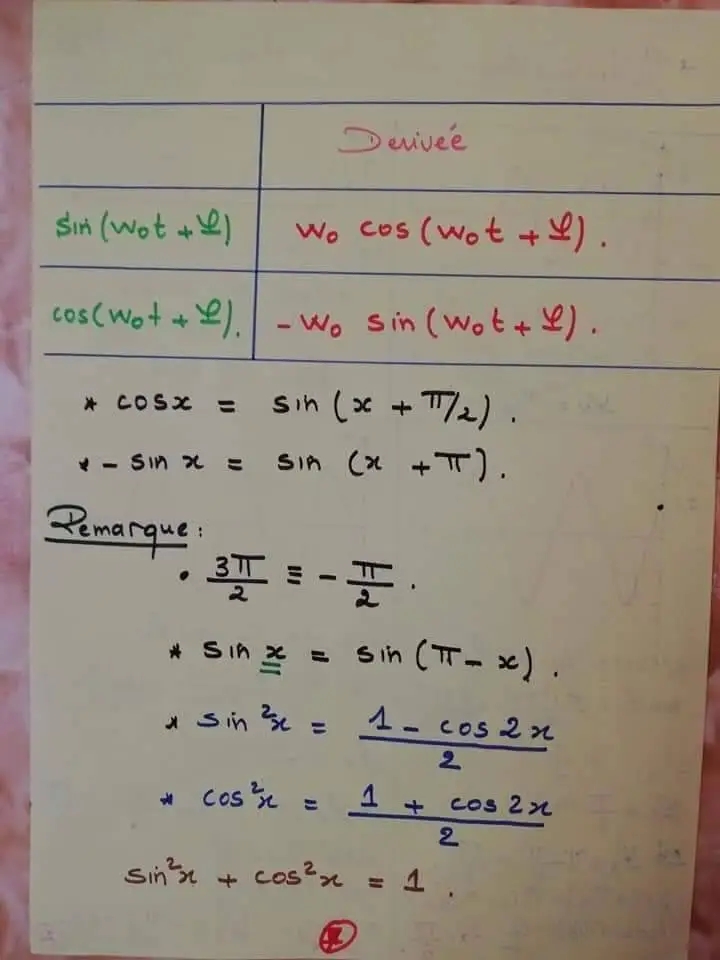 Derivée
sin(w₀t + φ) w₀ cos(w₀t + φ).
cos(w₀t + φ). - w₀ sin(w₀t + φ).
* cosx = sin(x + π/2).
* - sin x = sin (x + π).
Remarque :
• 3π/2 ≡ - π/2 .
* sin x = sin(π - x).
* sin²x = (1 - cos 2x)/2
* cos²x = (1 + cos 2x)/2
sin²x + cos²x = 1 .